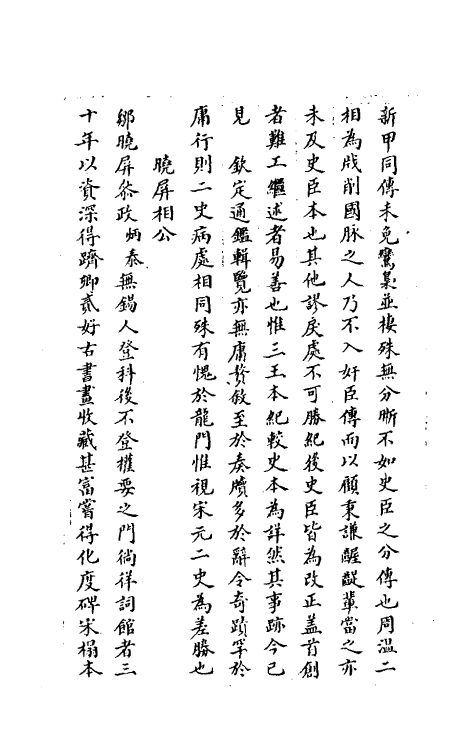 新甲同傳未免鸞梟並棲殊無分晰不如史臣之分傳也周溫二
相為戕削國脉之人乃不入奸臣傳而以顧秉謙龌龊輩當之亦
未及史臣本也其他謬戾處不可勝紀後史臣皆為改正盖首創
者難工繼述者易善也惟三王本紀較史本為詳然其事跡今已
見　欽定通鑑輯覽亦無庸贅敘至於奏牘多於辭令奇蹟罕於
庸行則二史病處相同殊有愧於龍門惟視宋元二史為差勝也
曉屏相公
鄒曉屏叅政炳泰無錫人登科後不登權要之門徜徉詞館者三
十年以資深得躋卿貳好古書畫收藏甚富嘗得化度碑宋榻本